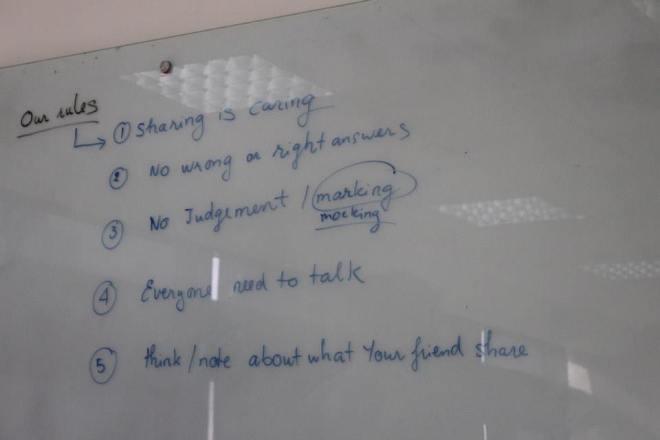 Our rules
① Sharing is caring
② No wrong or right answers
③ No Judgement / marking
mocking
④ Everyone need to talk
⑤ think / note about what Your friend share